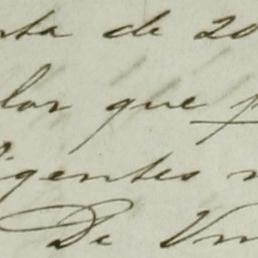 ta de 20
lor que
igentes
De Vm